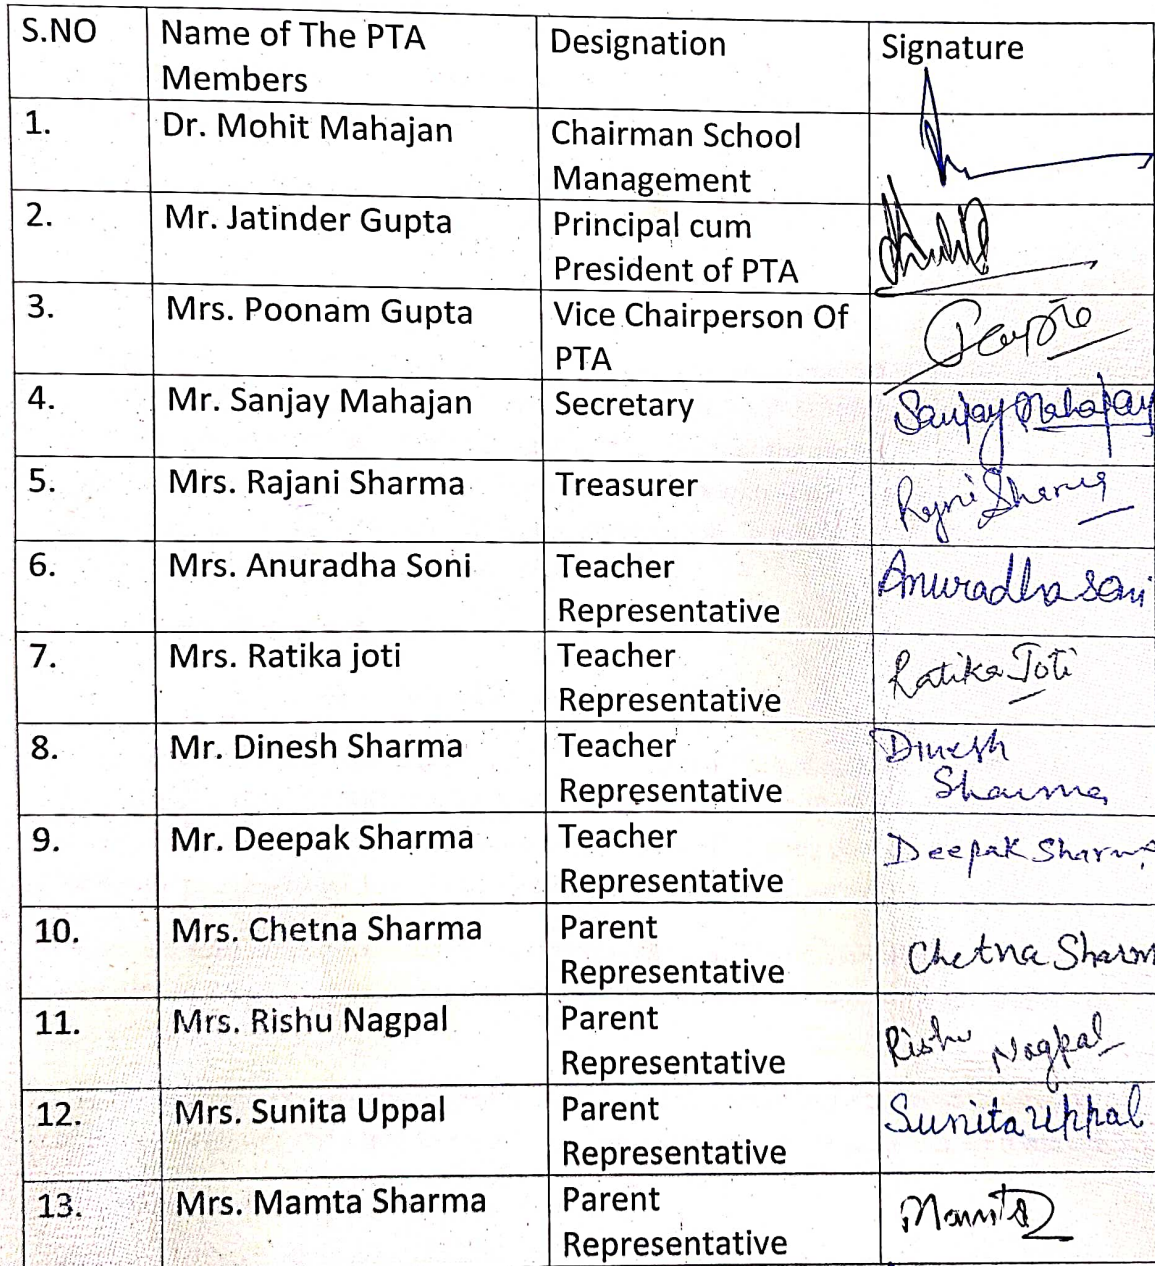 S.NO Name of The PTA Members Designation Signature
1. Dr. Mohit Mahajan Chairman School Management
2. Mr. Jatinder Gupta Principal cum President of PTA
3. Mrs. Poonam Gupta Vice Chairperson Of PTA
4. Mr. Sanjay Mahajan Secretary Sanjay Mahajan
5. Mrs. Rajani Sharma Treasurer Rajni Sharma
6. Mrs. Anuradha Soni Teacher Representative Anuradha Soni
7. Mrs. Ratika joti Teacher Representative Ratika Joti
8. Mr. Dinesh Sharma Teacher Representative Dinesh Sharma
9. Mr. Deepak Sharma Teacher Representative Deepak Sharma
10. Mrs. Chetna Sharma Parent Representative Chetna Sharm
11. Mrs. Rishu Nagpal Parent Representative Rishu Nagpal
12. Mrs. Sunita Uppal Parent Representative Sunita Uppal
13. Mrs. Mamta Sharma Parent Representative Mamta